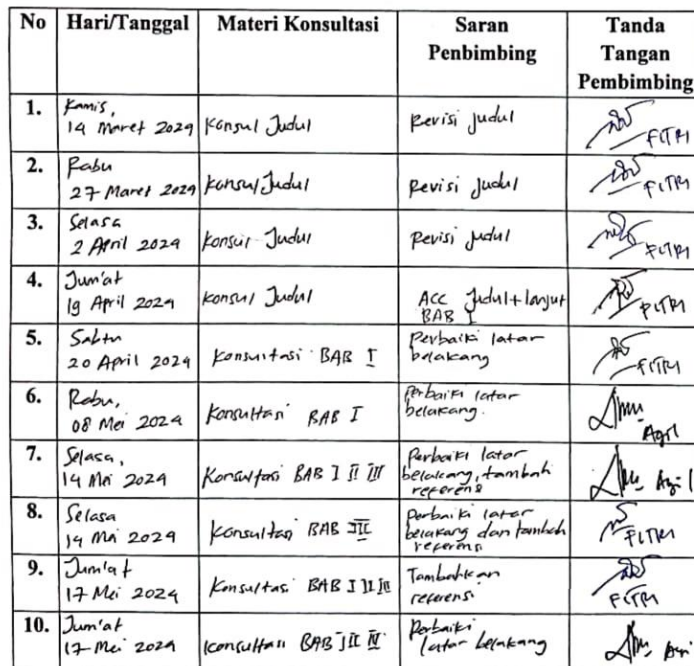 No Hari/Tanggal Materi Konsultasi Saran Penbimbing Tanda Tangan Pembimbing
1. Kamis, 14 Maret 2024 Konsul Judul Revisi Judul FITRI
2. Rabu 27 Maret 2024 Konsul Judul Revisi Judul FITRI
3. Selasa 2 April 2024 Konsul Judul Revisi Judul FITRI
4. Jum'at 19 April 2024 Konsul Judul ACC Judul + lanjut BAB I FITRI
5. Sabtu 20 April 2024 Konsultasi BAB I Perbaiki latar belakang FITRI
6. Rabu, 08 Mei 2024 Konsultasi BAB I Perbaiki latar belakang. Agil
7. Selasa, 14 Mei 2024 Konsultasi BAB I II III Perbaiki latar belakang, tambah referensi Agil
8. Selasa 14 Mei 2024 Konsultasi BAB III Perbaiki latar belakang dan tambah referensi FITRI
9. Jum'at 17 Mei 2024 Konsultasi BAB I II III Tambahkan referensi FITRI
10. Jum'at 17 Mei 2024 Konsultasi BAB Perbaiki latar belakang